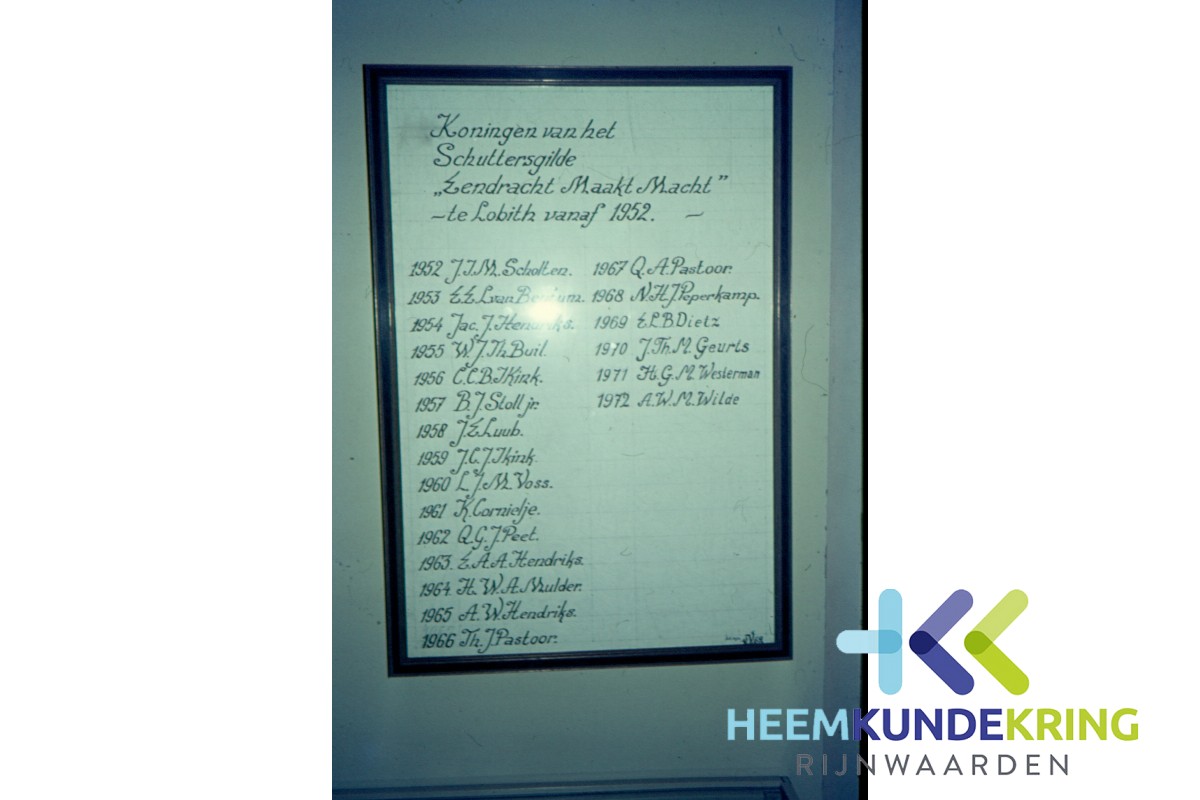 Koningen van het
Schuttersgilde
„Eendracht Maakt Macht”
~ te Lobith vanaf 1952. ~
1952 J.J.M. Scholten.
1953 E.E.L. van
1954 Jac. J. Hendriks.
1955 W.J.Th. Buil.
1956 C.C.B. Ikink.
1957 B.J. Stoll jr.
1958 J.E. Luub.
1959 J.C.J. Ikink.
1960 L.J.M. Voss.
1961 K. Cornielje.
1962 Q.G.J. Peet.
1963. E.A.A. Hendriks.
1964. H.W.A. Mulder.
1965 A.W. Hendriks.
1966 Th.J. Pastoor.
1967 Q.A. Pastoor.
1968 N.H.J. Peperkamp.
1969 E.L.B. Dietz
1970 J.Th.M. Geurts
1971 H.G.M. Westerman
1972 A.W.M. Wilde
HEEMKUNDEKRING
RIJNWAARDEN